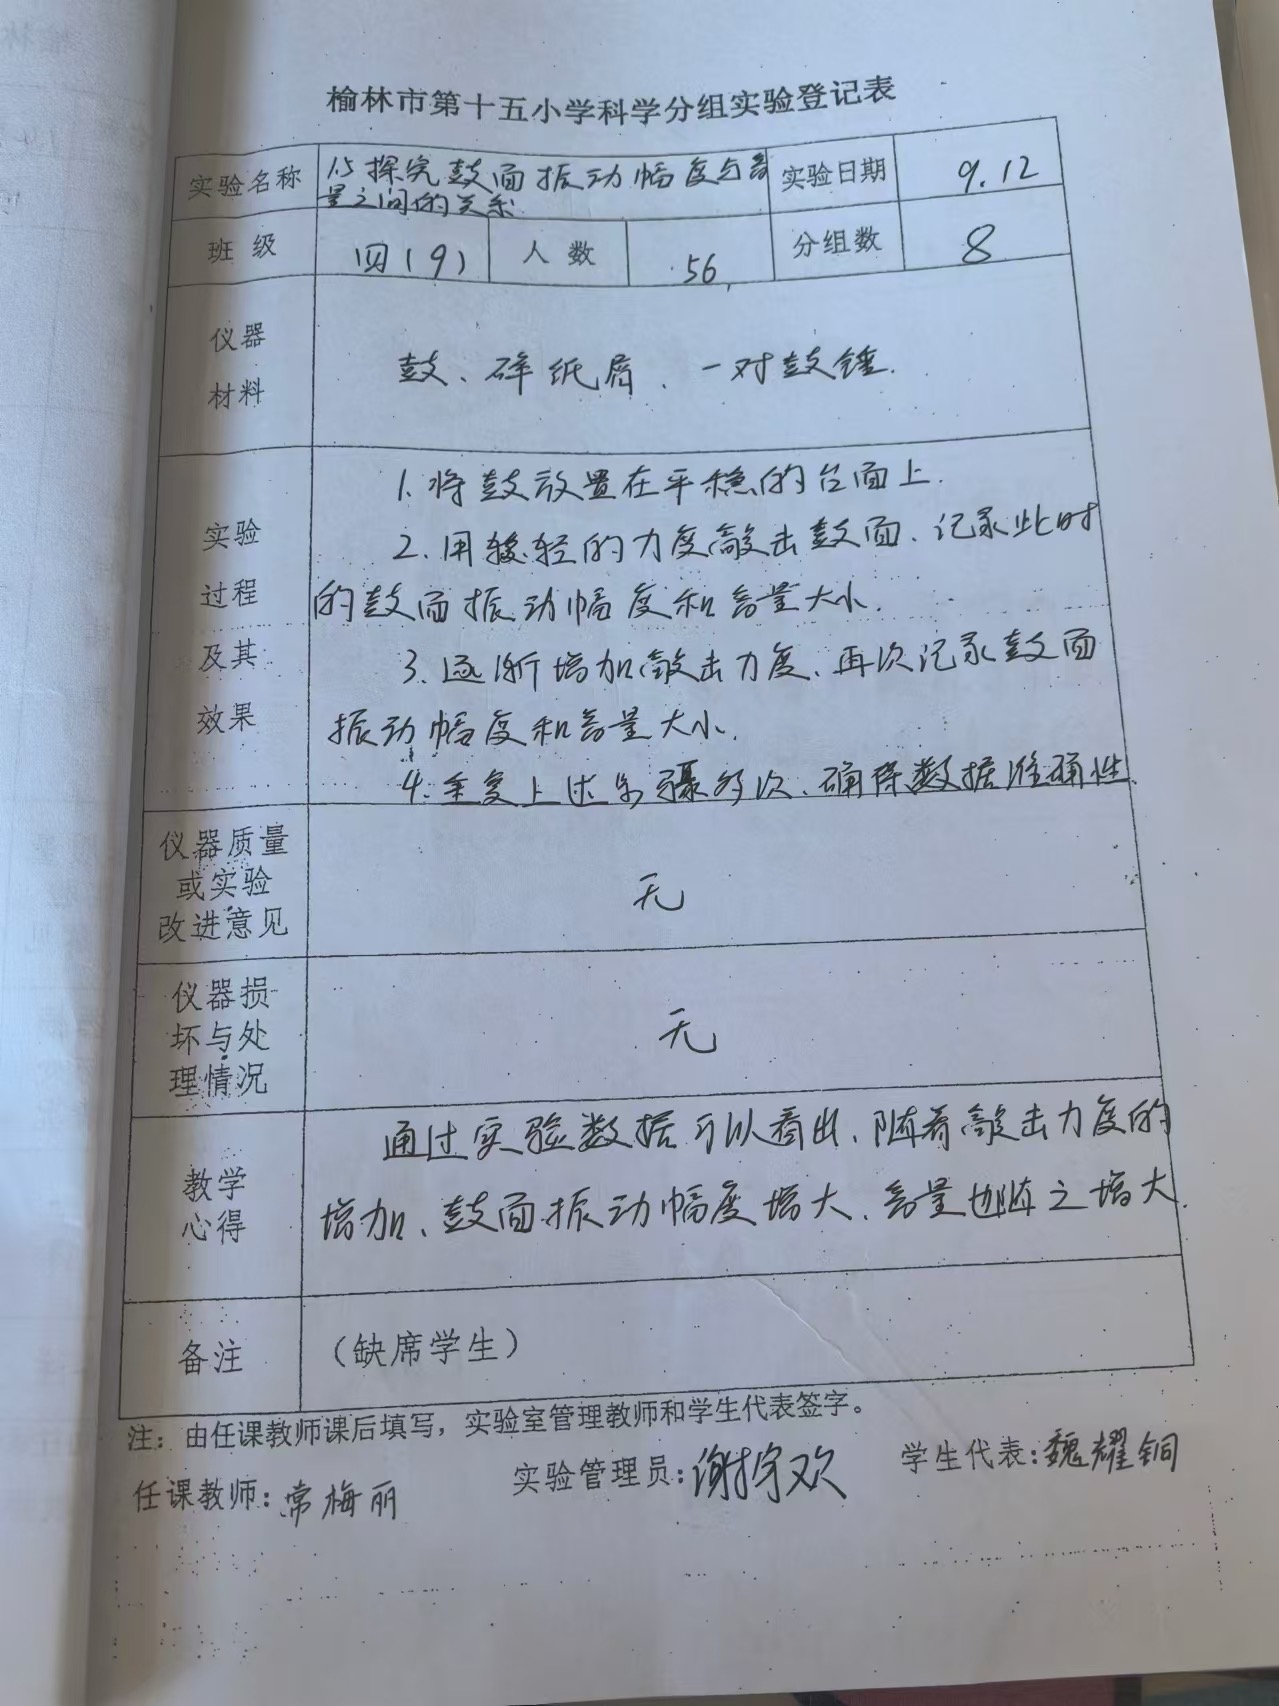 榆林市第十五小学科学分组实验登记表
实验名称 15探究鼓面振动幅度与音量之间的关系 实验日期 9.12
班级 四(9) 人数 56 分组数 8
仪器
材料
鼓、碎纸屑、一对鼓锤.
实验
过程
及其
效果
1.将鼓放置在平稳的台面上.
2.用较轻的力度敲击鼓面、记录此时
的鼓面振动幅度和音量大小.
3.逐渐增加敲击力度、再次记录鼓面
振动幅度和音量大小.
4.重复上述步骤多次、确保数据准确性.
仪器质量
或实验
改进意见
无
仪器损
坏与处
理情况
无
教学
心得
通过实验数据可以看出、随着敲击力度的
增加、鼓面振动幅度增大、音量也随之增大.
备注 (缺席学生)
注：由任课教师课后填写，实验室管理教师和学生代表签字。
任课教师：常梅丽 实验管理员：谢宇欢 学生代表：魏耀铜